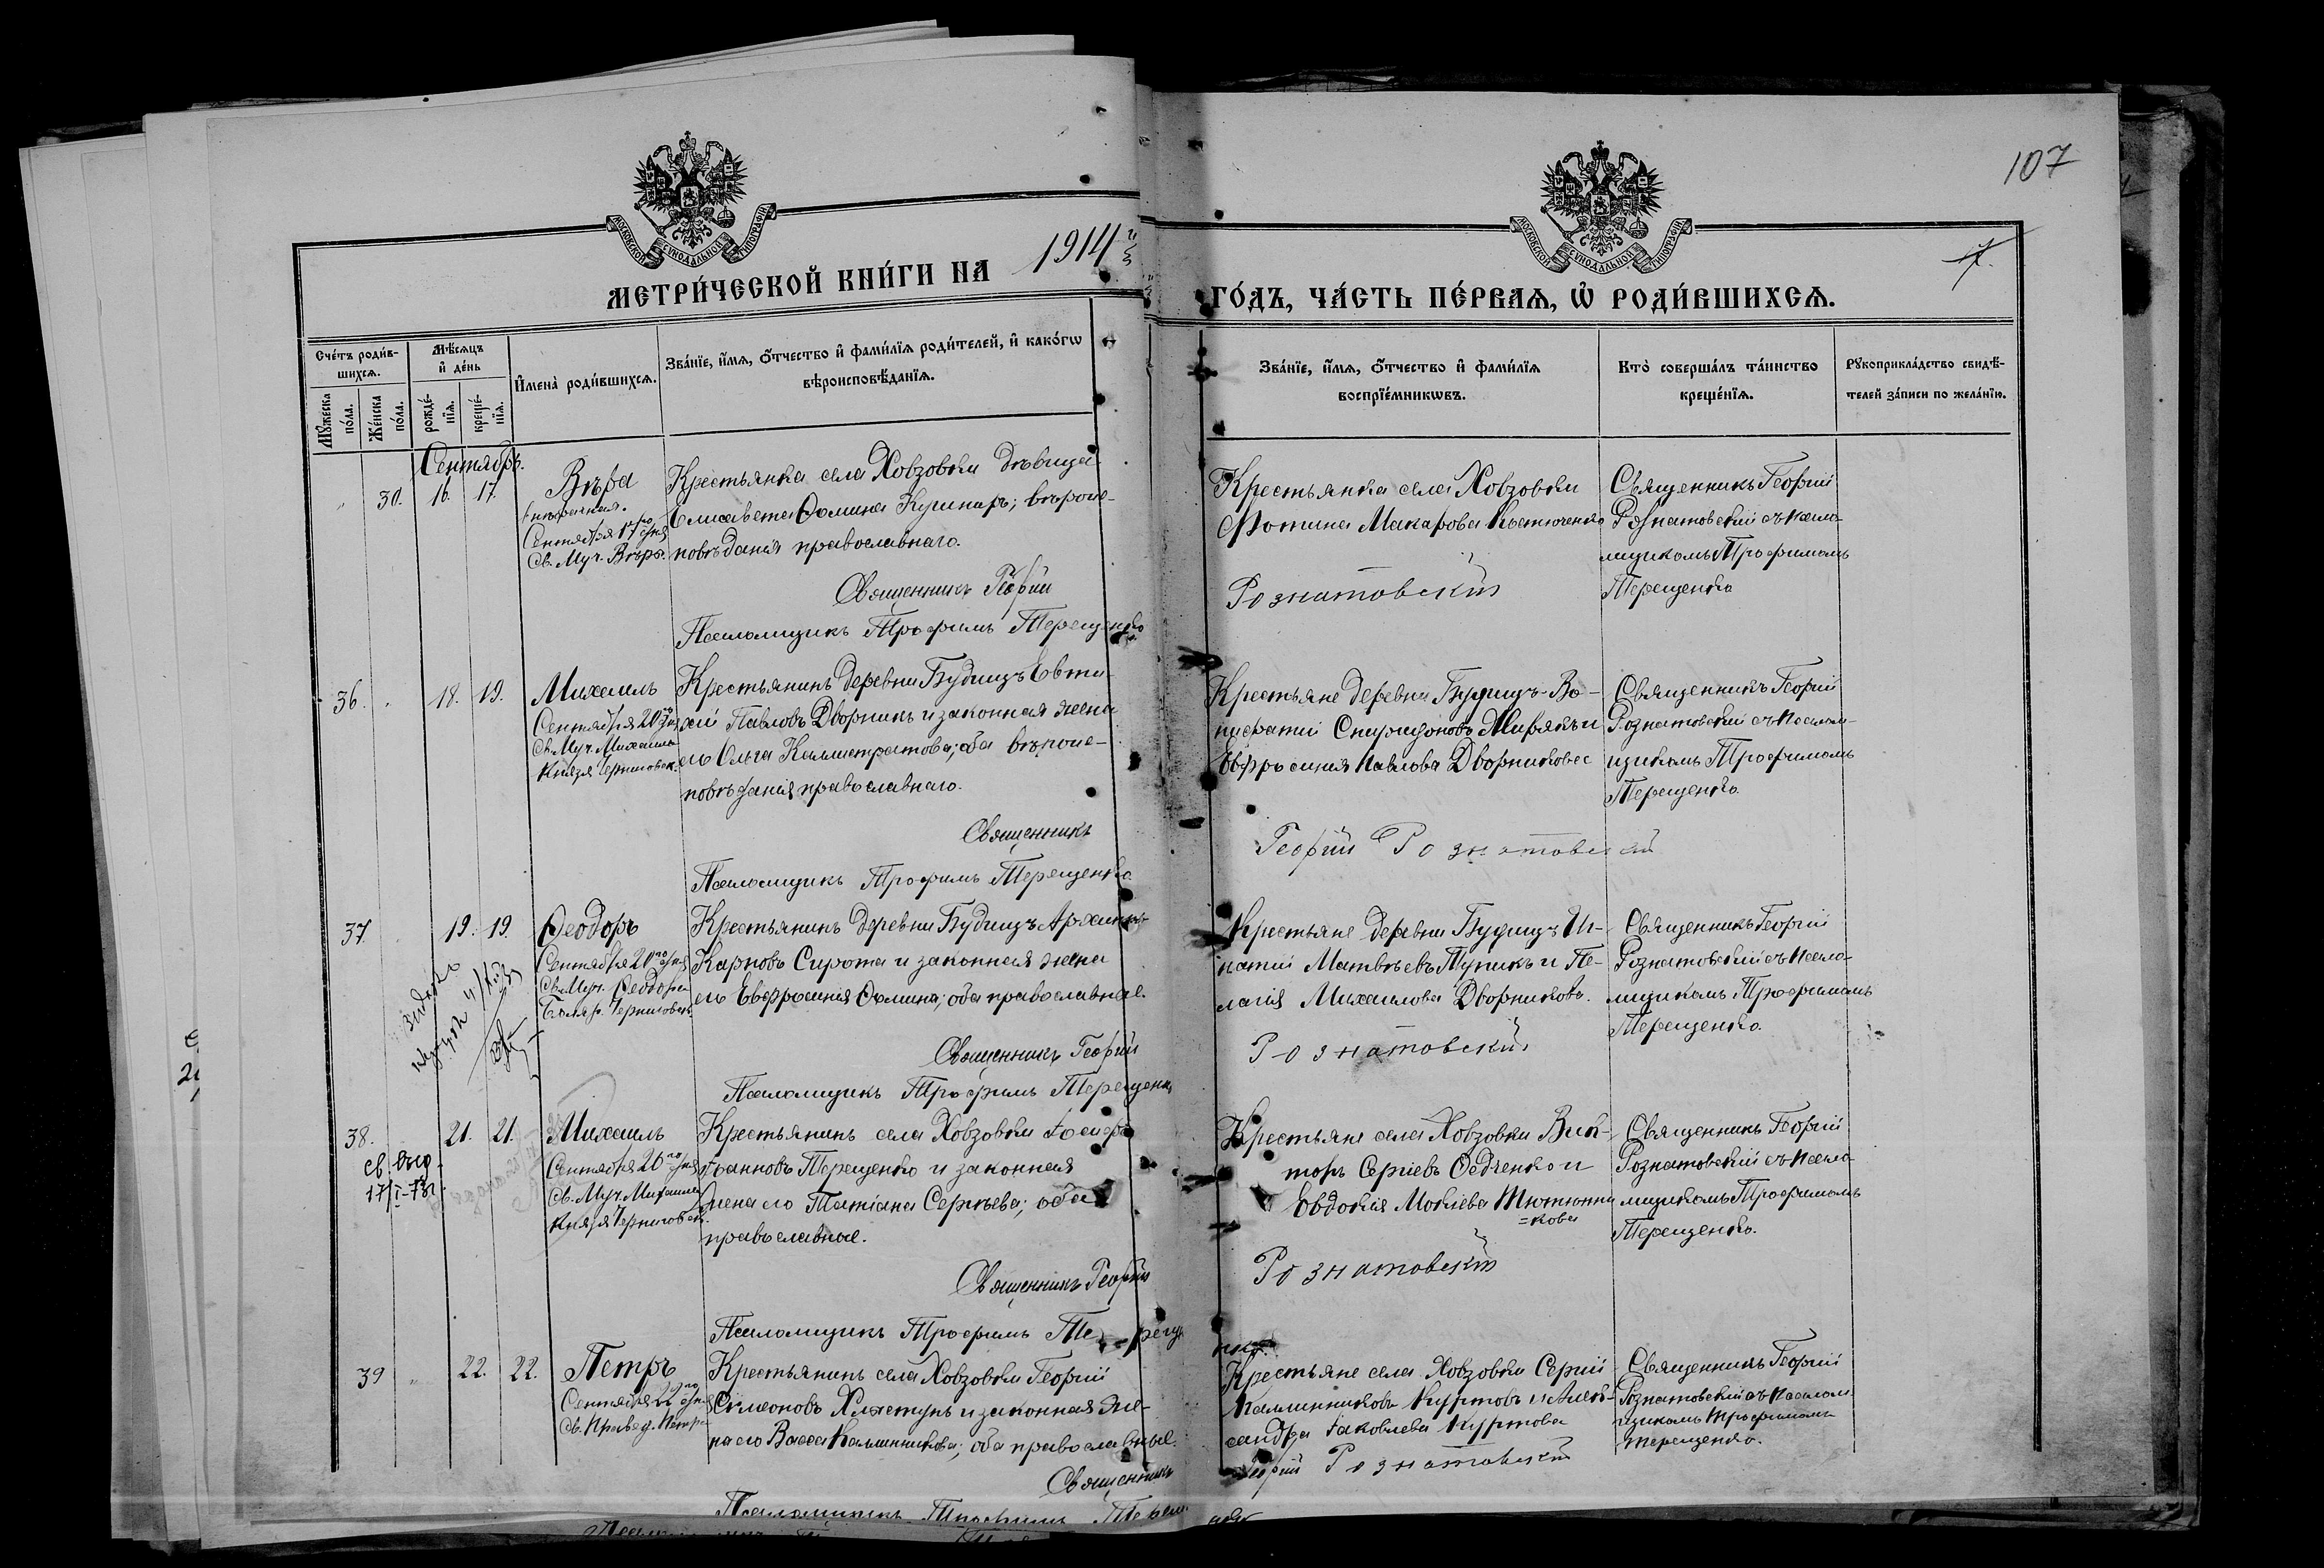 107
МОСКОВСКОЙ СѴНОДАЛЬНОЙ ТИПОГРАФІИ
МОСКОВСКОЙ СѴНОДАЛЬНОЙ ТИПОГРАФІИ
МЕТРИ́ЧЕСКОЙ КНИ́ГИ НА 1914
ГО́ДЪ, ЧА́СТЬ ПЕ́РВАѦ, Ѽ РОДИ́ВШИХСѦ.
Сче́тъ роди́в-
шихсѧ.
Мꙋ́жеска
по́ла.
Же́нска
по́ла.
Мѣ́сѧцъ
и҆ де́нь
рожде́-
нїѧ.
креще́-
нїѧ.
И҆мена̀ роди́вшихсѧ.
Зва́нїе, и҆́мѧ, ѻ҆́тчество и҆ фами́лїѧ роди́телей, и҆ како́гѡ
вѣроисповѣ́данїѧ.
Зва́нїе, и҆́мѧ, ѻ҆́тчество и҆ фами́лїѧ
воспрїе́мникѡвъ.
Кто̀ соверша́лъ та́инство
креще́нїѧ.
Рꙋкоприкла́дство свидѣ́-
телей за́писи по жела́нїю.
Сентябрь.
30. 16. 17.
Вѣра
внѣбрачная.
Сентября 17го дня
Св. Муч. Вѣры.
Крестьянка села Ховзовки дѣвица
Елисавета Ѳомина Кушниръ; вѣроис-
повѣданія православнаго.
Священникъ Георгій
Псаломщикъ Трофимъ Терещенко
Крестьянка села Ховзовки
Фотина Макарова Костюченко
Рознатовскій
Священникъ Георгій
Рознатовскій съ псало-
мщикомъ Трофимомъ
Терещенко
36. 18. 19.
Михаилъ
Сентября 20го дня
Св. Муч. Михаила
Князя Черниговск.
Крестьянинъ деревни Будищъ Евти-
хій Павловъ Дворникъ и законная жена
его Ольга Каллистратова; оба вѣроис-
повѣданія православнаго.
Священникъ
Псаломщикъ Трофимъ Терещенко
Крестьяне деревни Будищъ Во-
нифатій Спиридоновъ Жирякъ и
Евфросинія Павлова Дворникова
Георгій Рознатовскій
Священникъ Георгій
Рознатовскій съ псалом-
щикомъ Трофимомъ
Терещенко.
37. 19. 19.
Ѳеодоръ
Сентября 20го дня
Св. Муч. Ѳеодора
Боляр. Черниговск.
Крестьянинъ деревни Будищъ Архипъ
Карповъ Сирота и законная жена
его Евфросинія Ѳомина; оба православные.
Священникъ Георгій
Псаломщикъ Трофимъ Терещенк
Крестьяне деревни Будищъ Иг-
натій Матвѣевъ Тупикъ и Пе-
лагія Михаилова Дворникова.
Рознатовскій
Священникъ Георгій
Рознатовскій съ псало-
мщикомъ Трофимомъ
Терещенко.
38. 21. 21.
св. выд.
17/I-73г.
Михаилъ
Сентября 20го дня
Св. Муч. Михаила
Князя Черниговск.
Крестьянинъ села Ховзовки Іосифъ
Іоанновъ Терещенко и законная
жена его Татіана Сергѣева; оба
православные.
Священникъ Георгій
Псаломщикъ Трофимъ Терещенко
Крестьяне села Ховзовки Вик-
торъ Сергіевъ Ѳедченко и
Евдокія Мокіева Тютюнни
=кова
Рознатовскій
Священникъ Георгій
Рознатовскій съ псало-
мщикомъ Трофимомъ
Терещенко.
39 22. 22.
Петръ
Сентября 22го дня
Св. Правед. Петра
Крестьянинъ села Ховзовки Георгій
Симеоновъ Хлыстунъ и законная же-
на его Васса Калинникова; оба православные.
Священникъ
Псаломщикъ Трофимъ Терещенко
Крестьяне села Ховзовки Сергій
Калинниковъ Куртовъ и Алек-
сандра Іаковлева Куртова
Георгій Рознатовскій
Священникъ Георгій
Рознатовскій съ псалом-
щикомъ Трофимомъ
Терещенко.